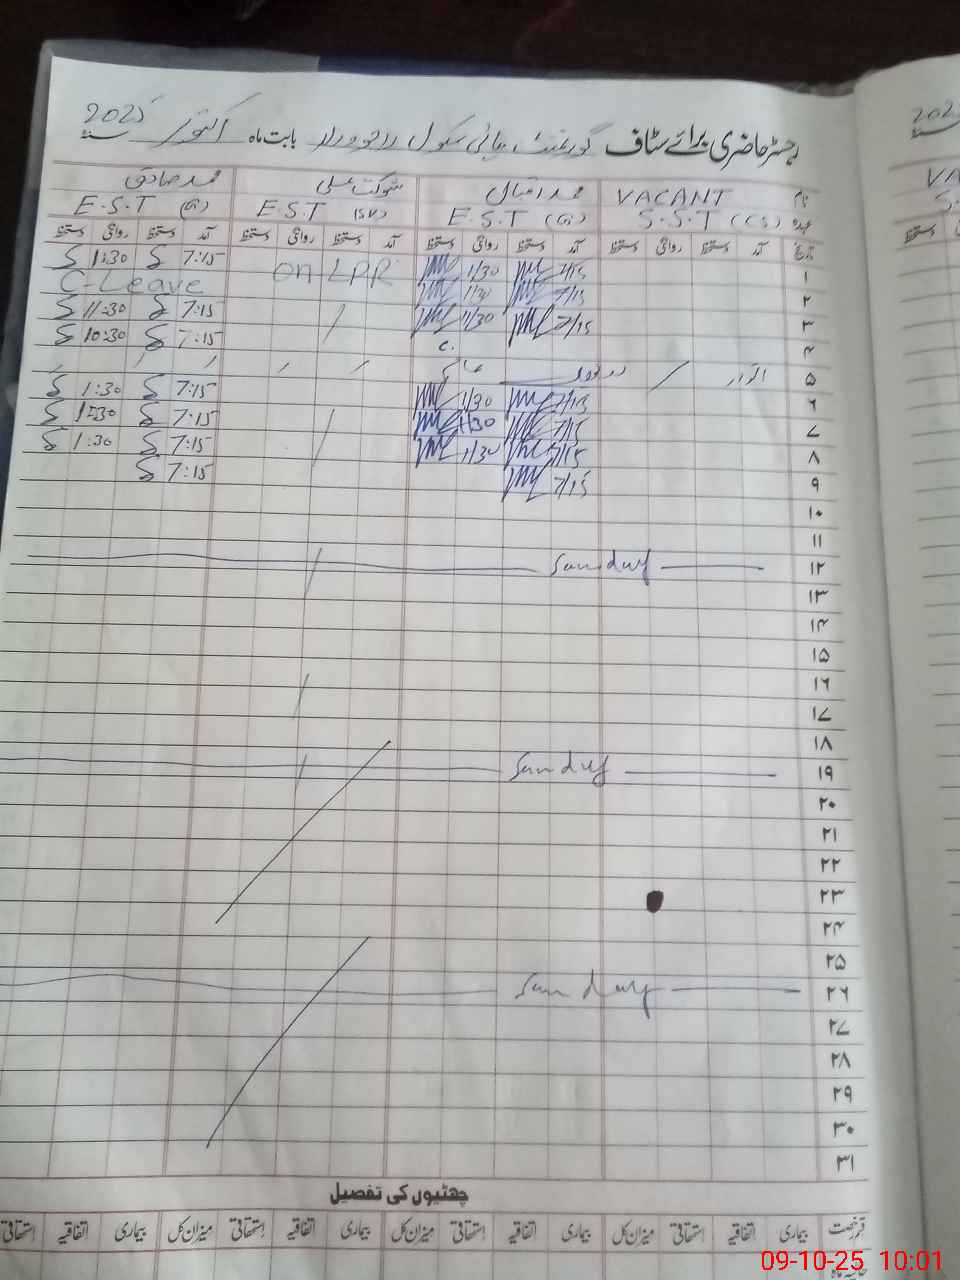 رجسٹر حاضری برائے سٹاف گورنمنٹ ہائی سکول بابت ماہ اکتوبر 2025
نام VACANT محمد اقبال شوکت علی محمد صادق
عہدہ S.S.T (CS) E.S.T (G) E.S.T (SV) E.S.T (G)
تاریخ آمد دستخط روانگی دستخط آمد دستخط روانگی دستخط آمد دستخط روانگی دستخط آمد دستخط روانگی دستخط
۱ 7/15 1/30 on LPR 7:15 1:30
۲ 7/15 1/30 C-Leave
۳ 7/15 1/30 7:15 11:30
۴ 7:15 10:30
۵ اتوار
۶ 7/15 1/30 7:15 1:30
۷ 7/15 1/30 7:15 1:30
۸ 7/15 1/30 7:15 1:30
۹ 7/15 7:15
۱۰
۱۱
۱۲ Sunday
۱۳
۱۴
۱۵
۱۶
۱۷
۱۸
۱۹ Sunday
۲۰
۲۱
۲۲
۲۳
۲۴
۲۵
۲۶ Sunday
۲۷
۲۸
۲۹
۳۰
۳۱
چھٹیوں کی تفصیل
قسم رخصت بیماری اتفاقیہ استحقاقی میزان کل بیماری اتفاقیہ استحقاقی میزان کل بیماری اتفاقیہ استحقاقی میزان کل بیماری اتفاقیہ استحقاقی
09-10-25 10:01